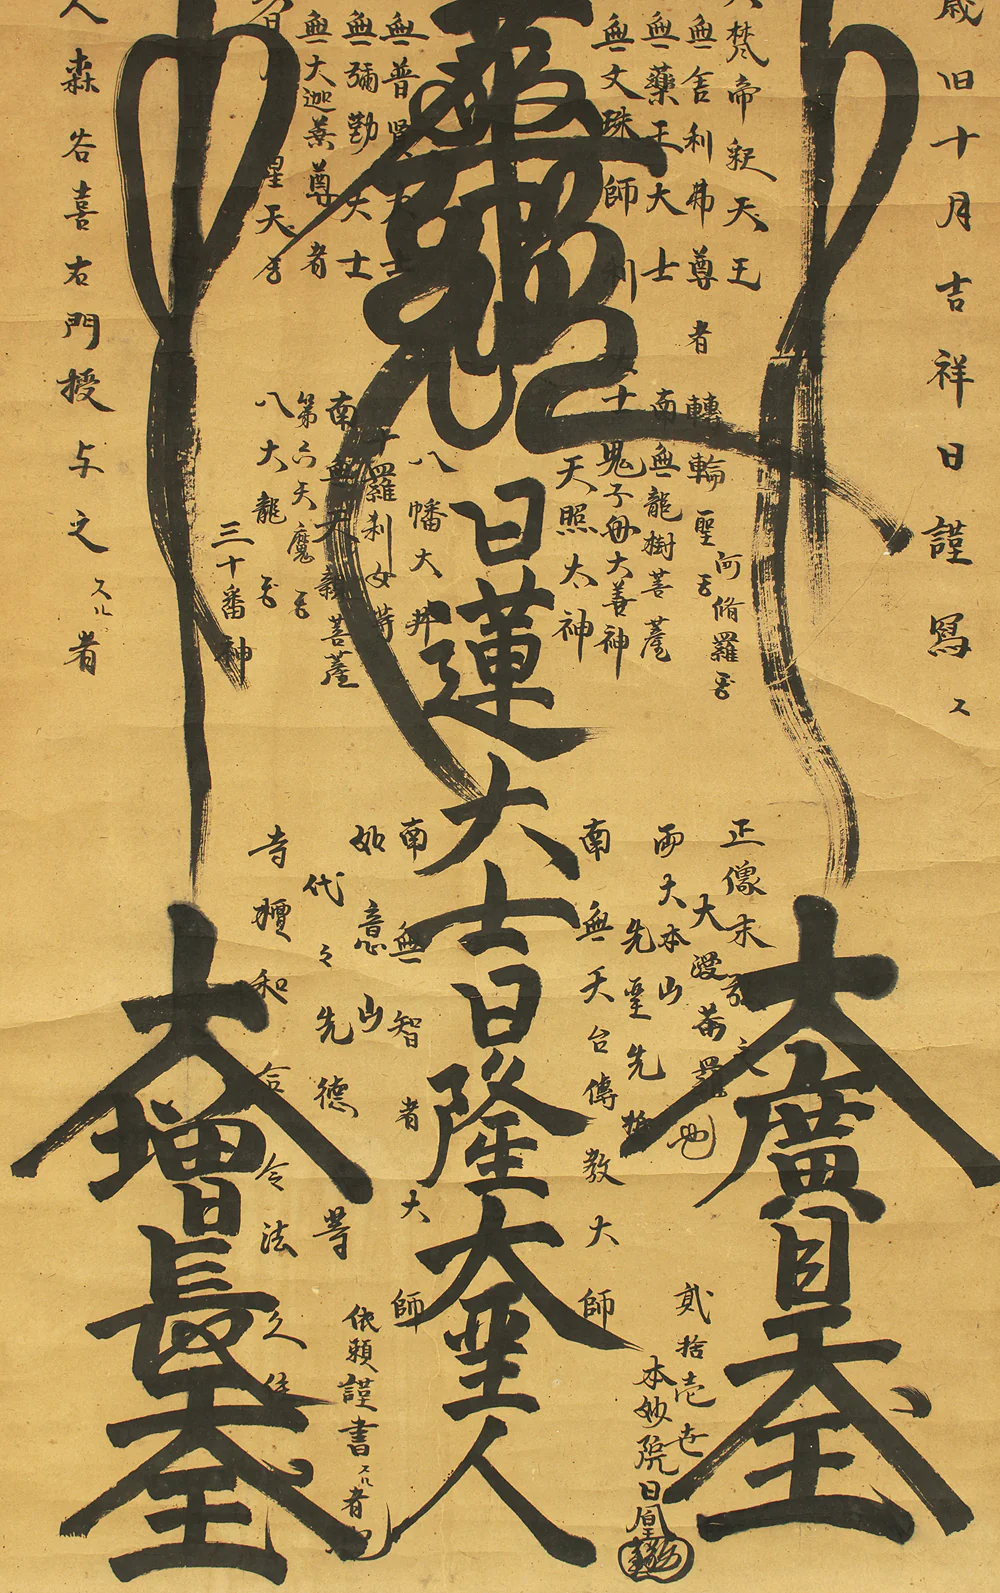 歳旧十月吉祥日謹寫ス
梵帝釈天王
無舎利弗尊者
無薬王大士
無文珠師利
無普賢
無彌勒大士
無大迦葉尊者
星天
森谷喜右門授与之スル者
阿脩羅
轉輪聖
南無龍樹菩薩
十
鬼子母大善神
天照太神
八幡大
十羅刹女等
南無
菩薩
第六天魔
八大龍
三十番神
日蓮大士日隆大聖人
大廣目天王
大増長天王
正像末
大漫荼羅也
両大本山
先聖先
南無天台傳教大師
南無智者大師
如意山
代々先德等
寺檀和合令法久住
貳拾壱世
本妙院日凰
依願謹書スル者也